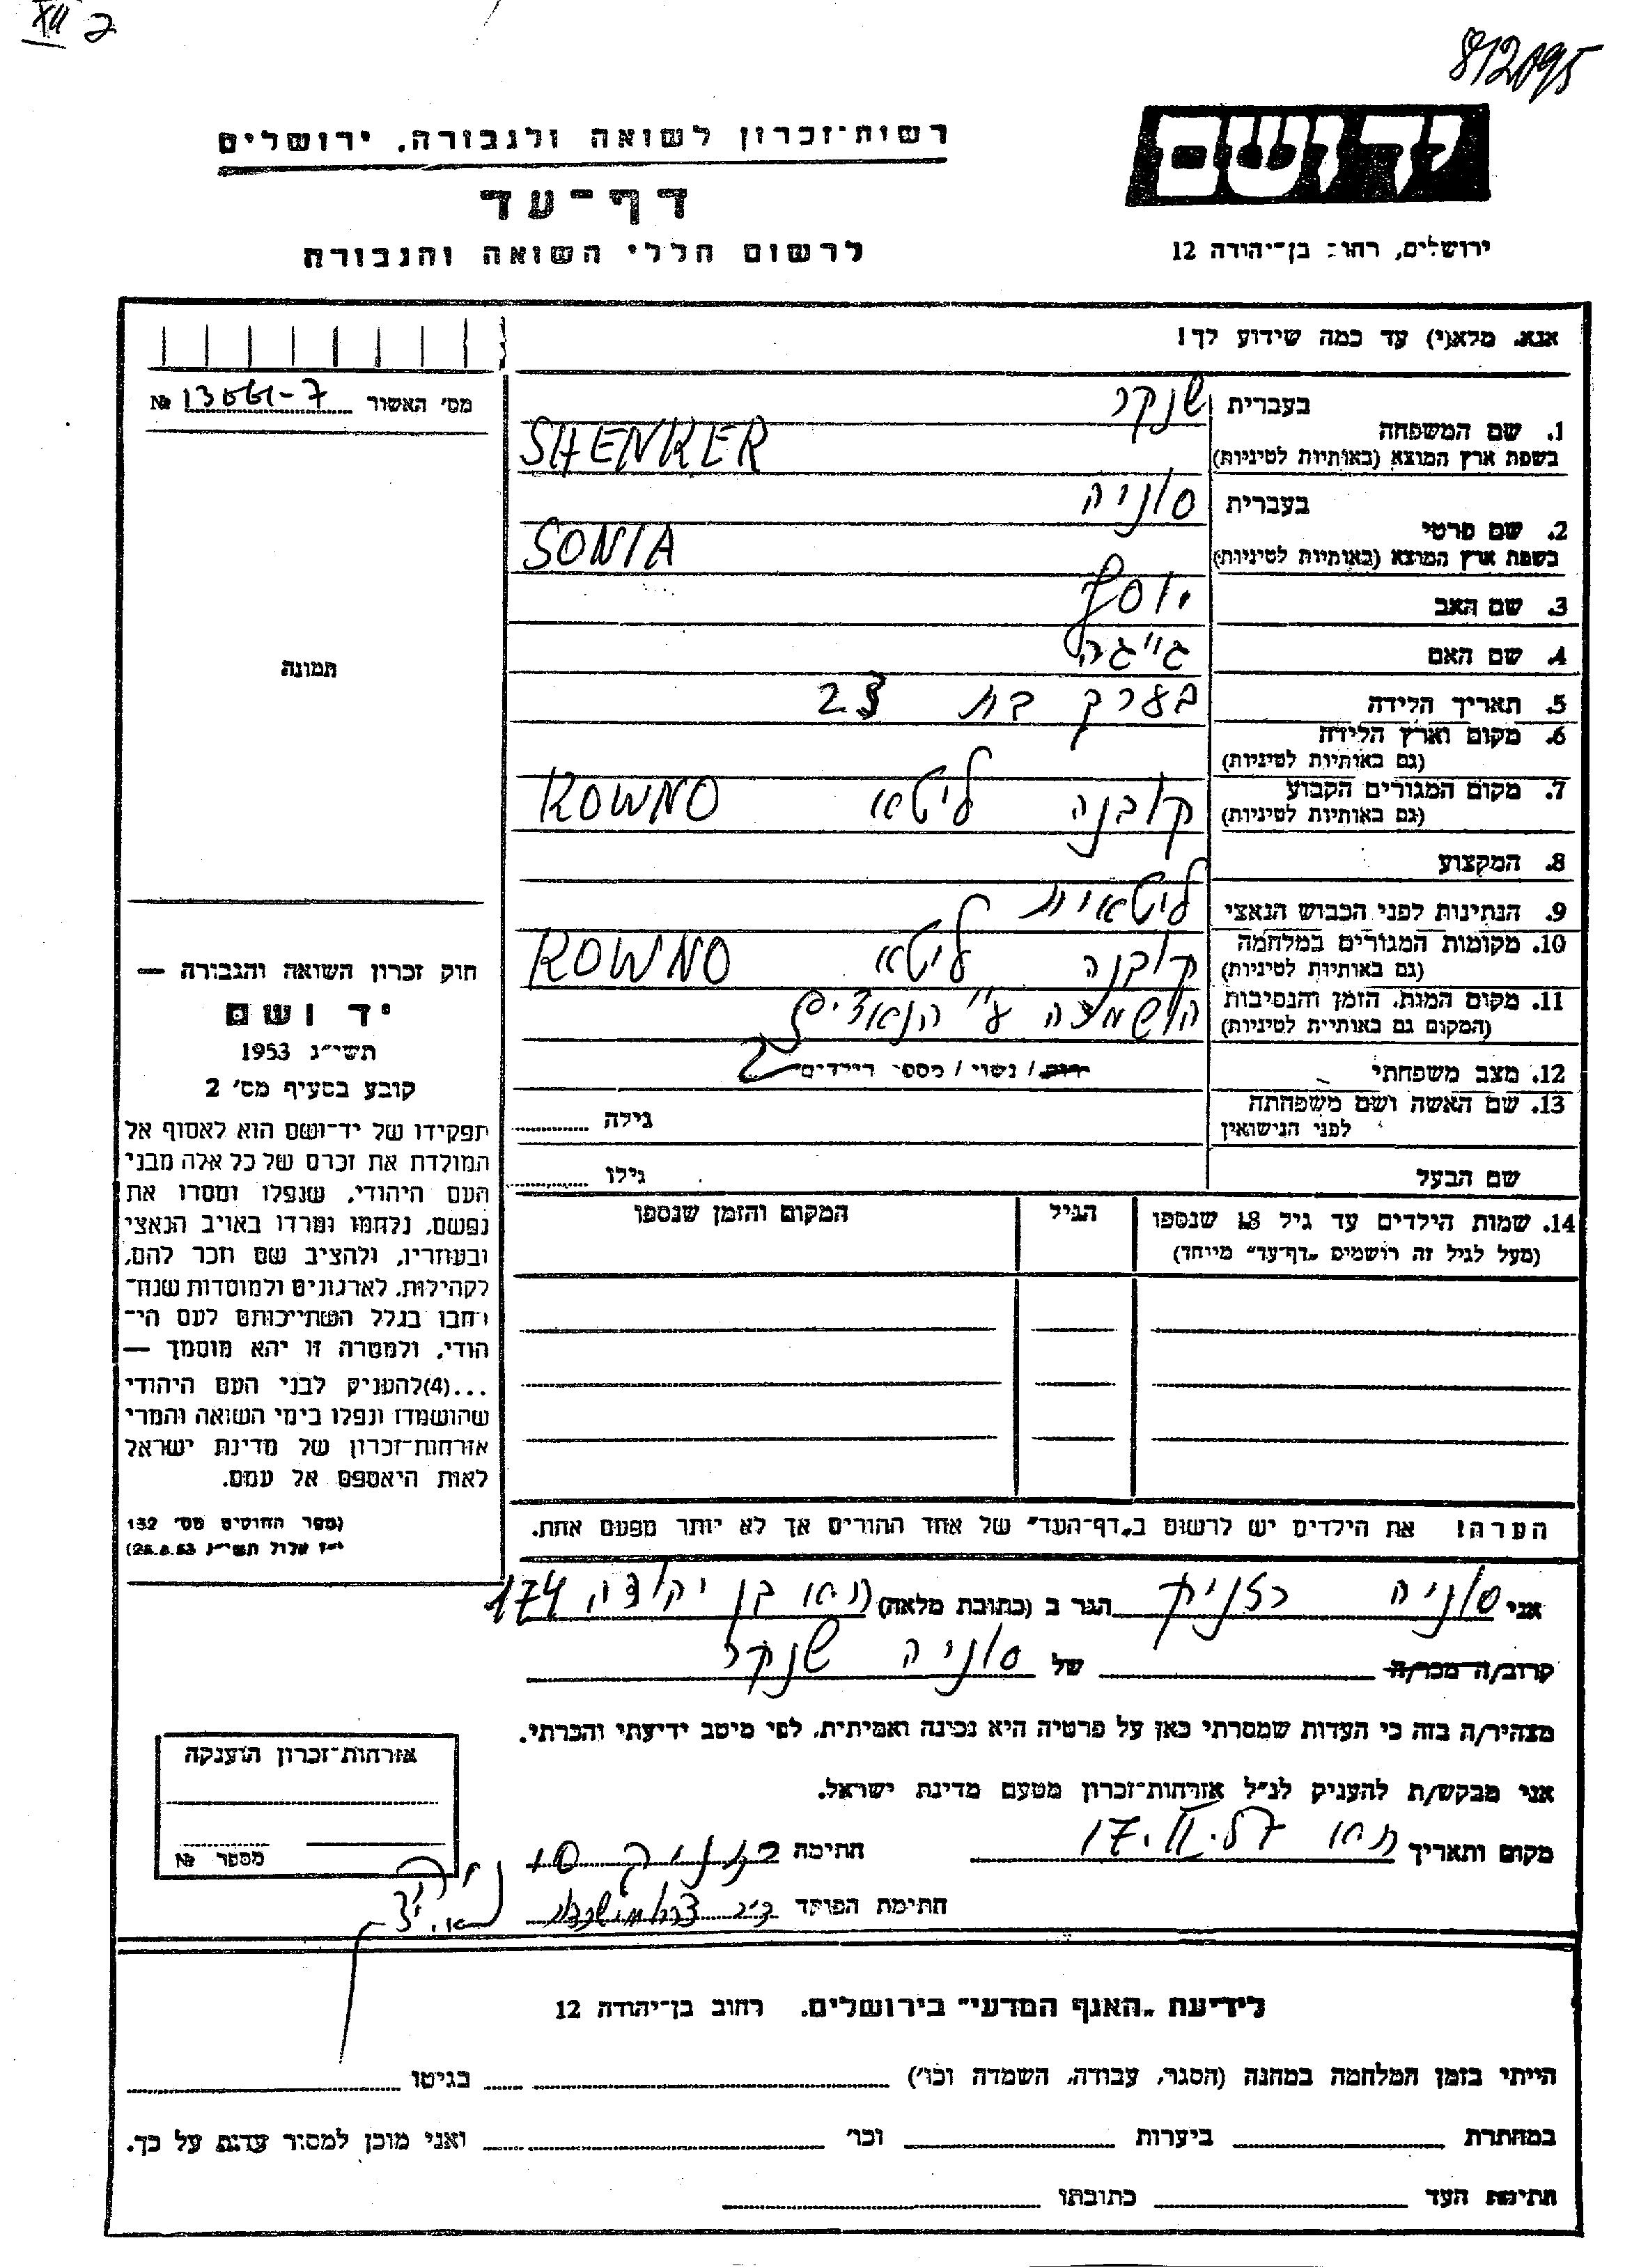 XII 2
812095
רשות־זכרון לשואה ולגבורה, ירושלים
יד ושם
דף־עד
לרשום חללי השואה והגבורה
ירושלים, רחוב בן־יהודה 12
אנא, מלא(י) עד כמה שידוע לך!
מס' האשור №
תמונה
בעברית שנקר
1. שם המשפחה
בשפת ארץ המוצא (באותיות לטיניות) SHENKER
בעברית סוניה
2. שם פרטי
בשפת ארץ המוצא (באותיות לטיניות) SONIA
3. שם האב יוסף
4. שם האם
5. תאריך הלידה בערך בת 23
6. מקום וארץ הלידה
(גם באותיות לטיניות)
7. מקום המגורים הקבוע קובנה ליטא KOWNO
(גם באותיות לטיניות)
8. המקצוע
9. הנתינות לפני הכבוש הנאצי ליטאית
10. מקומות המגורים במלחמה קובנה ליטא KOWNO
(גם באותיות לטיניות)
11. מקום המות, הזמן והנסיבות הושמדה ע"י הנאצים
(המקום גם באותיות לטיניות)
12. מצב משפחתי רווק / נשוי / מספר הילדים
13. שם האשה ושם משפחתה
לפני הנישואין גילה
שם הבעל גילו
14. שמות הילדים עד גיל 18 שנספו הגיל המקום והזמן שנספו
(מעל לגיל זה רושמים "דף־עד" מיוחד)
חוק זכרון השואה והגבורה —
יד ושם
תשי"ג 1953
קובע בסעיף מס' 2
תפקידו של יד־ושם הוא לאסוף אל
המולדת את זכרם של כל אלה מבני
העם היהודי, שנפלו ומסרו את
נפשם, נלחמו ומרדו באויב הנאצי
ובעוזריו, ולהציב שם וזכר להם,
לקהילות, לארגונים ולמוסדות שנח־
רבו בגלל השתייכותם לעם הי־
הודי, ולמטרה זו יהא מוסמך —
...(4)להעניק לבני העם היהודי
שהושמדו ונפלו בימי השואה והמרי
אזרחות־זכרון של מדינת ישראל
לאות היאספם אל עמם.
(ספר החוקים מס' 132
י"ז אלול תשי"ג 28.8.53)
הערה! את הילדים יש לרשום ב"דף־העד" של אחד ההורים אך לא יותר מפעם אחת.
אני סוניה רזניק הגר ב (כתובת מלאה) ת"א בן יהודה 174
קרוב/ה מכר/ה של סוניה שנקר
מצהיר/ה בזה כי העדות שמסרתי כאן על פרטיה היא נכונה ואמיתית, לפי מיטב ידיעתי והכרתי.
אני מבקש/ת להעניק לנ"ל אזרחות־זכרון מטעם מדינת ישראל.
מקום ותאריך ת"א 17.II.57 חתימה
חתימת הפוקד
אזרחות־זכרון הוענקה
מספר №
לידיעת "האגף המדעי" בירושלים, רחוב בן־יהודה 12
הייתי בזמן המלחמה במחנה (הסגר, עבודה, השמדה וכו') בגיטו
במחתרת ביערות וכו' ואני מוכן למסור עדות על כך.
חתימת העד כתובתו